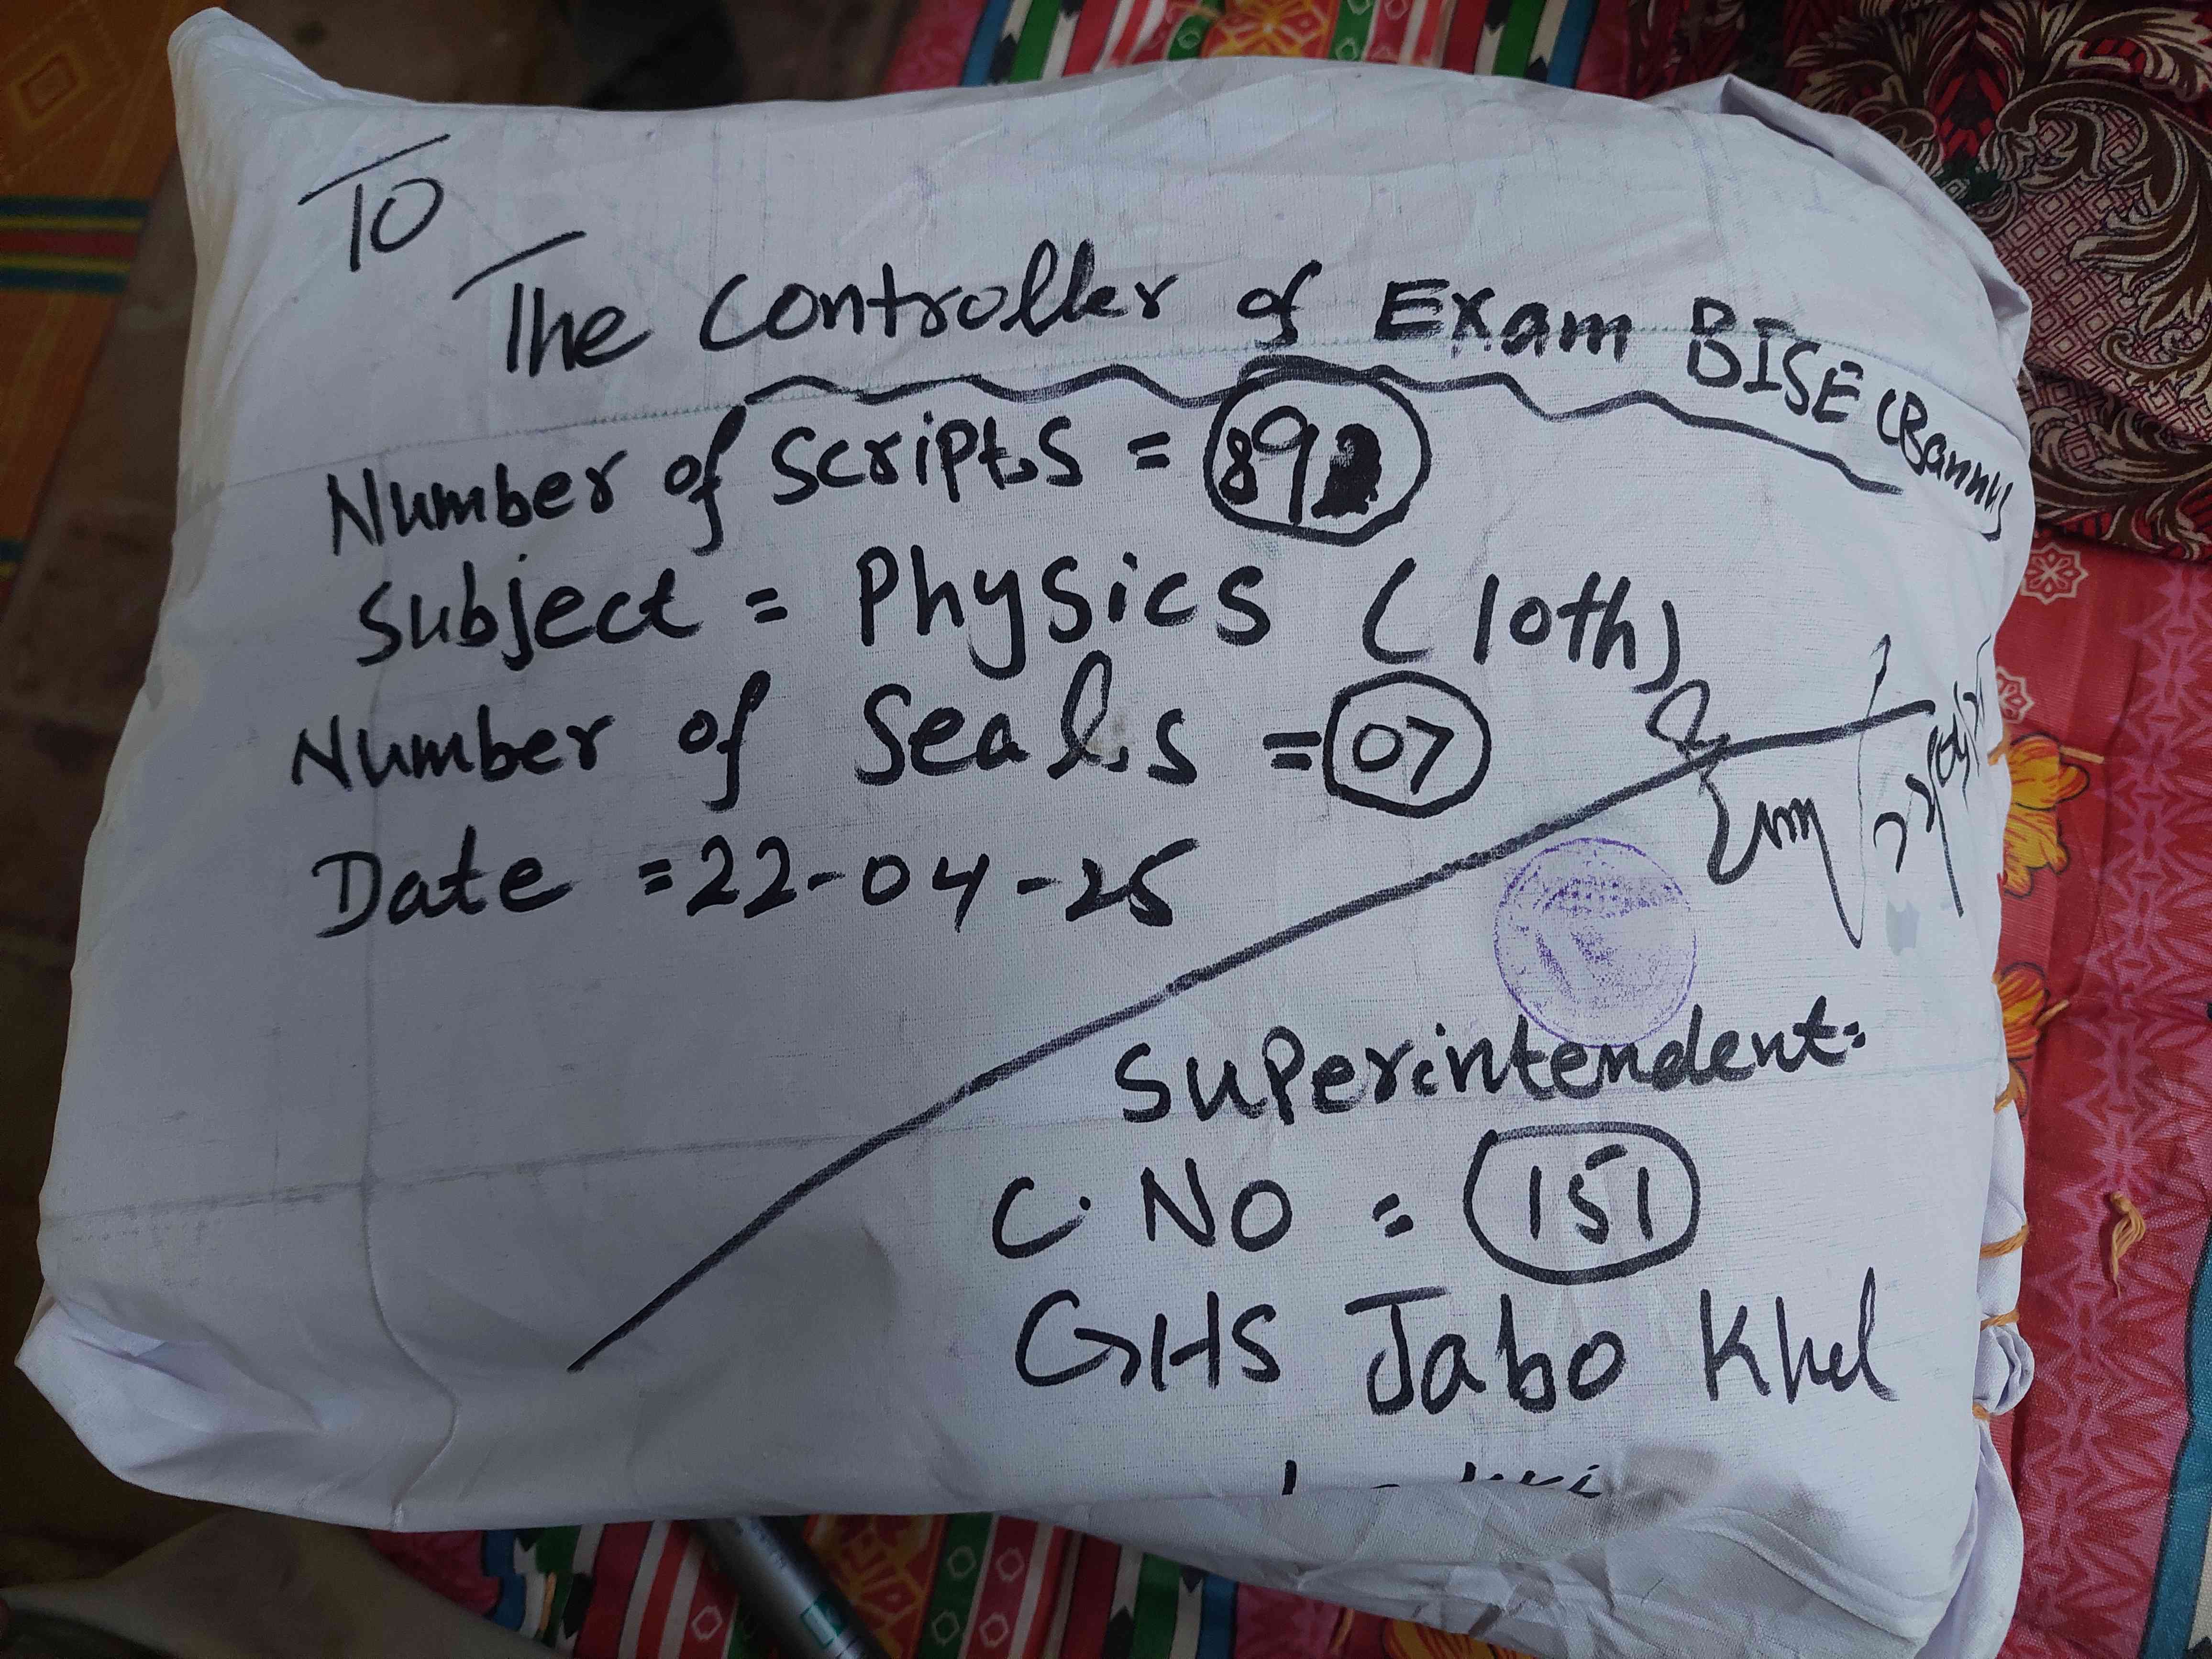 To
The Controller of Exam BISE (Bannu)
Number of Scripts =
Subject = Physics (10th)
Number of Seals = 07
Date = 22-04-25
Superintendent.
C. No = 151
GHS Jabo Khel